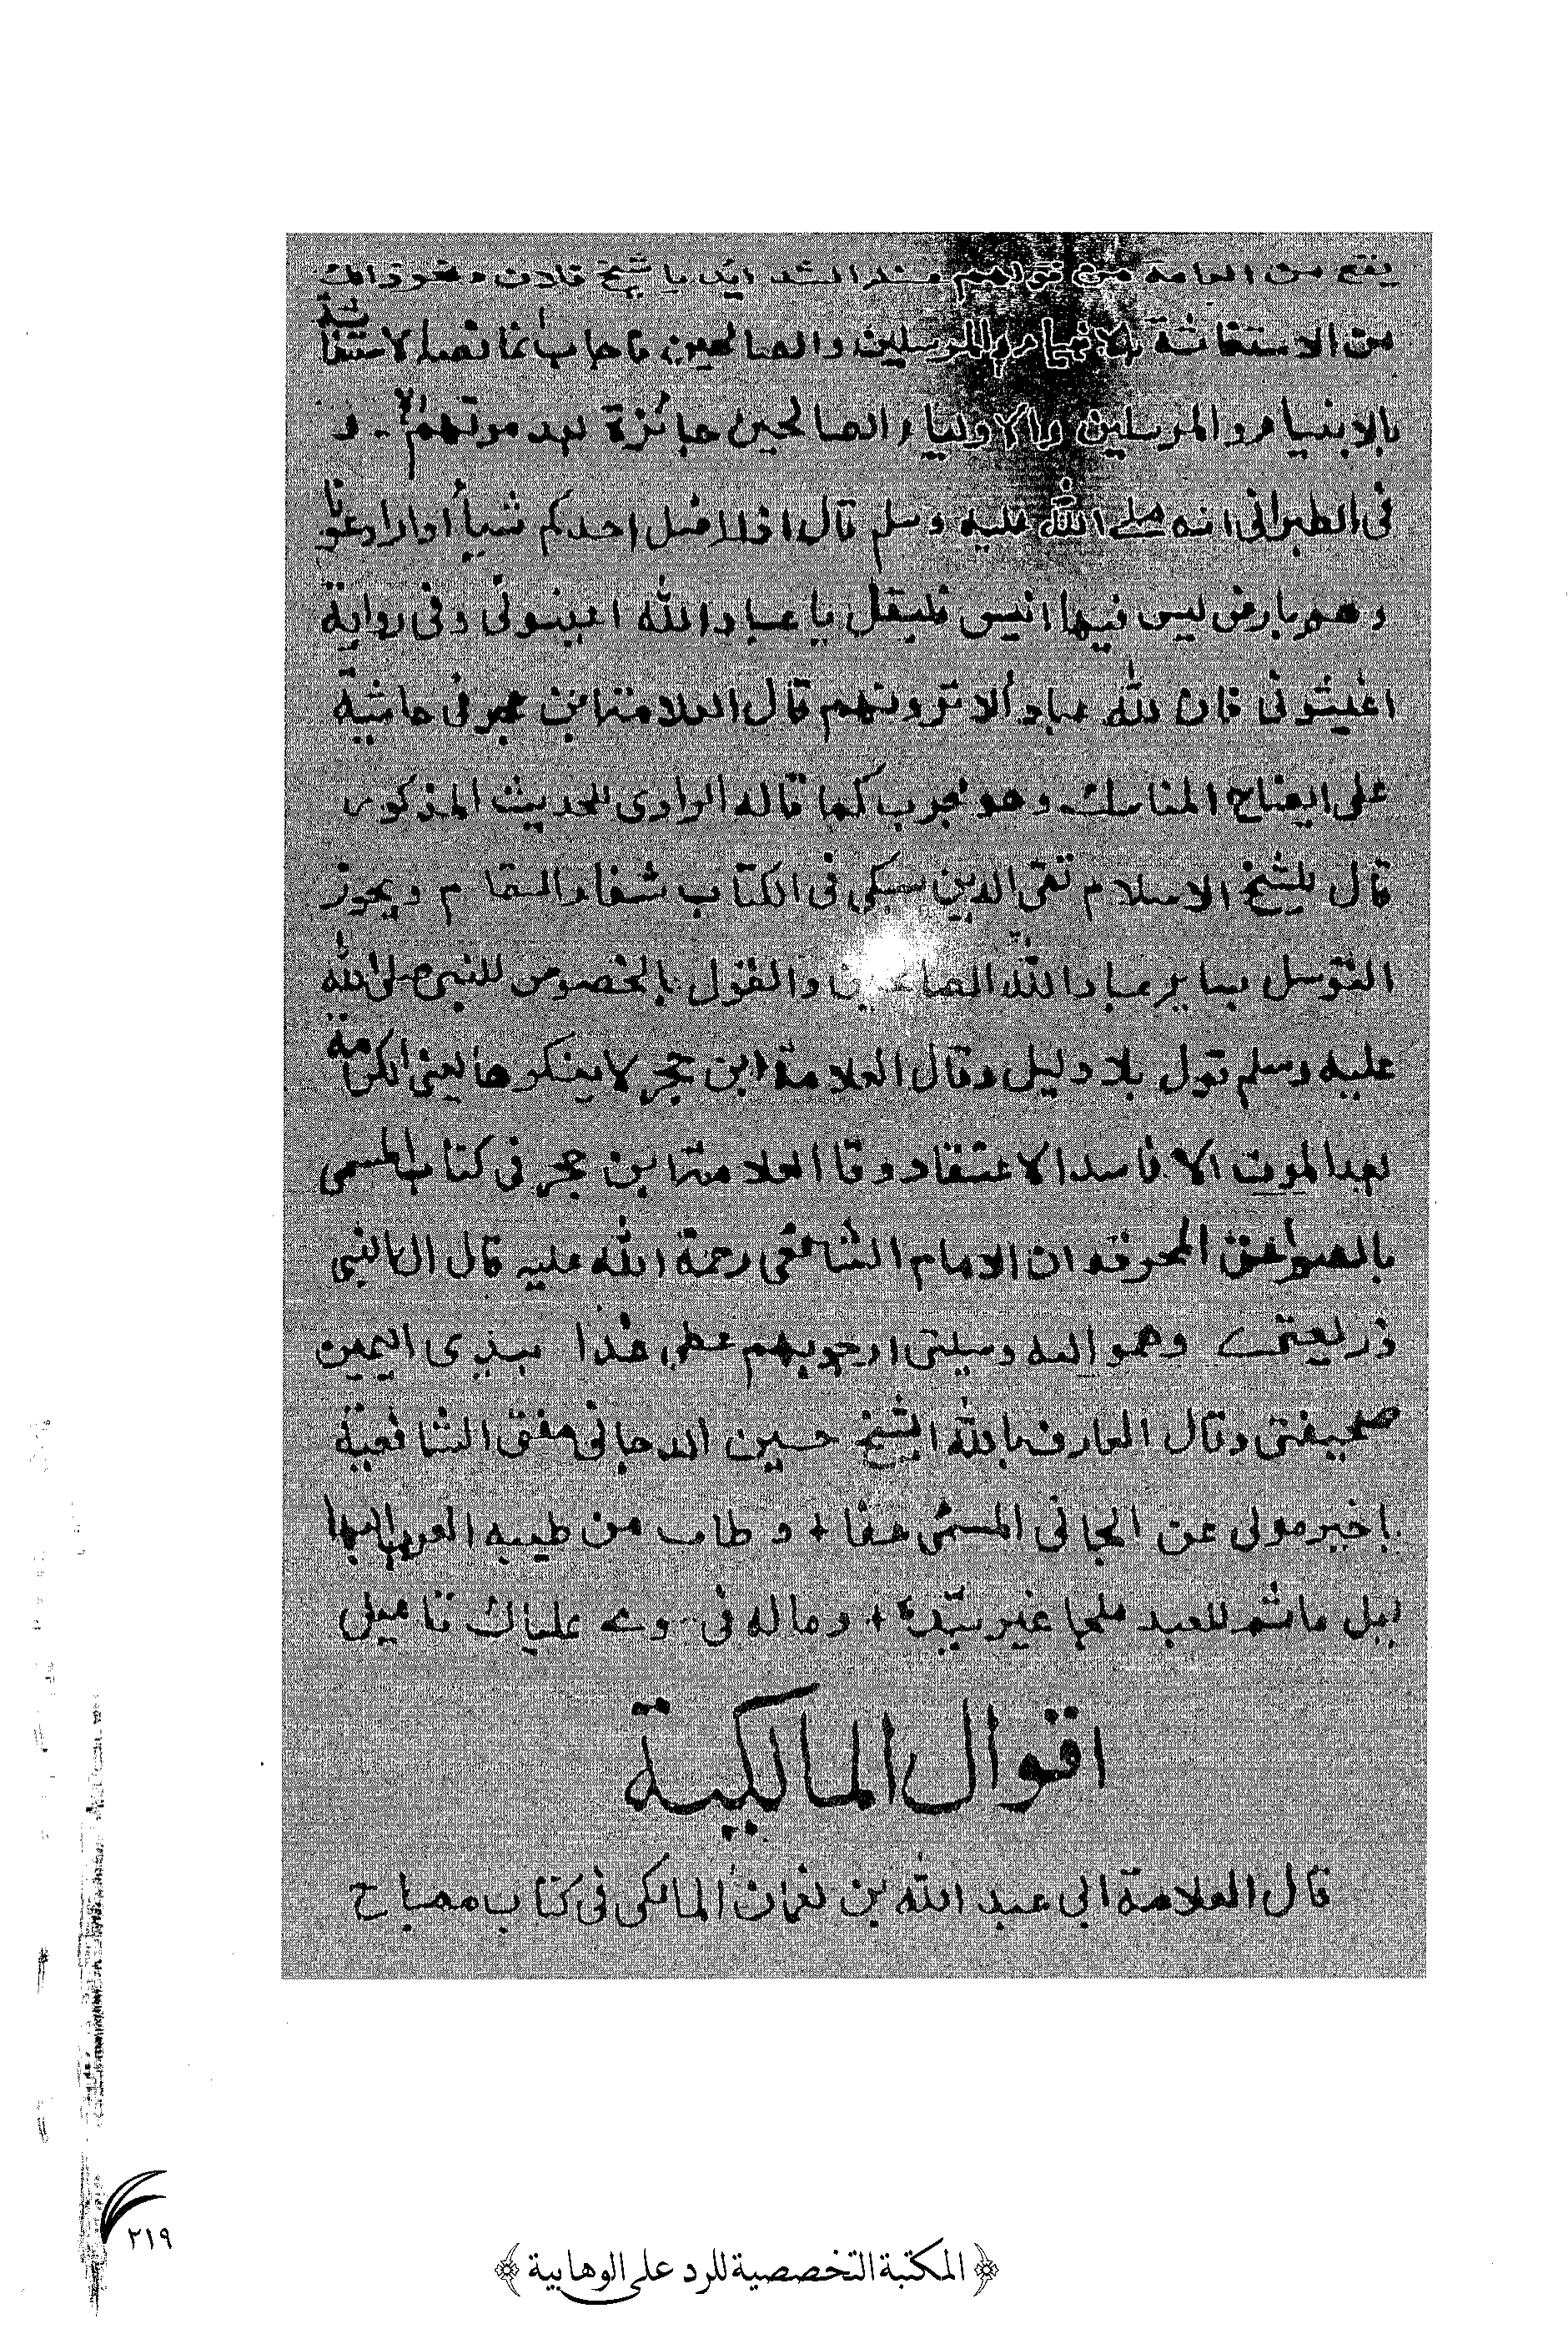 يقع من العامة من قولهم عند الشدائد يا شيخ فلان ونحو ذالك
من الاستغاثة بالانبياء والمرسلين والصالحين فاجاب بما نصه الاستغاثة
بالانبياء والمرسلين والاولياء والصالحين جائزة بعد موتهم الا و
فى الطبرانى انه صلى الله عليه وسلم قال اذا اضل احدكم شيأ او اراد عونا
وهو بارض ليس فيها انيس فليقل يا عباد الله اعينونى وفى رواية
اغيثونى فان لله عباداً لا ترونهم قال العلامة ابن حجر فى حاشية
على ايضاح المناسك وهو مجرب كما قاله الراوى للحديث المذكور
قال للشيخ الاسلام تقى الدين سبكي فى الكتاب شفاء السقام ويجوز
التوسل بساير عباد الله الصالحين والقول بالخصوص للنبي صلى الله
عليه وسلم قول بلا دليل وقال العلامة ابن حجر لا ينكرها يعنى الكرامة
بعد الموت الا فاسد الاعتقاد وقا العلامة ابن حجر فى كتاب المسمى
بالصواعق المحرقه ان الامام الشافعى رحمة الله عليه قال ال النبي
ذريعتى وهمو اليه وسيلتى ارجو بهم عطى غذا بيدى اليمين
صحيفتى وقال العارف بالله الشيخ حسين الدجانى مفتى الشافعية
اخير مولى عن الجانى المسمى هفا + و طاب من طيبه العرب
ماشم للعبد ملجا غير سيّده + وماله فى علياك تاميل
اقوال المالكية
قال العلامة ابى عبد الله بن نعمان المالكى فى كتاب مصباح
٢١٩
﴿المكتبة التخصصية للرد على الوهابية﴾